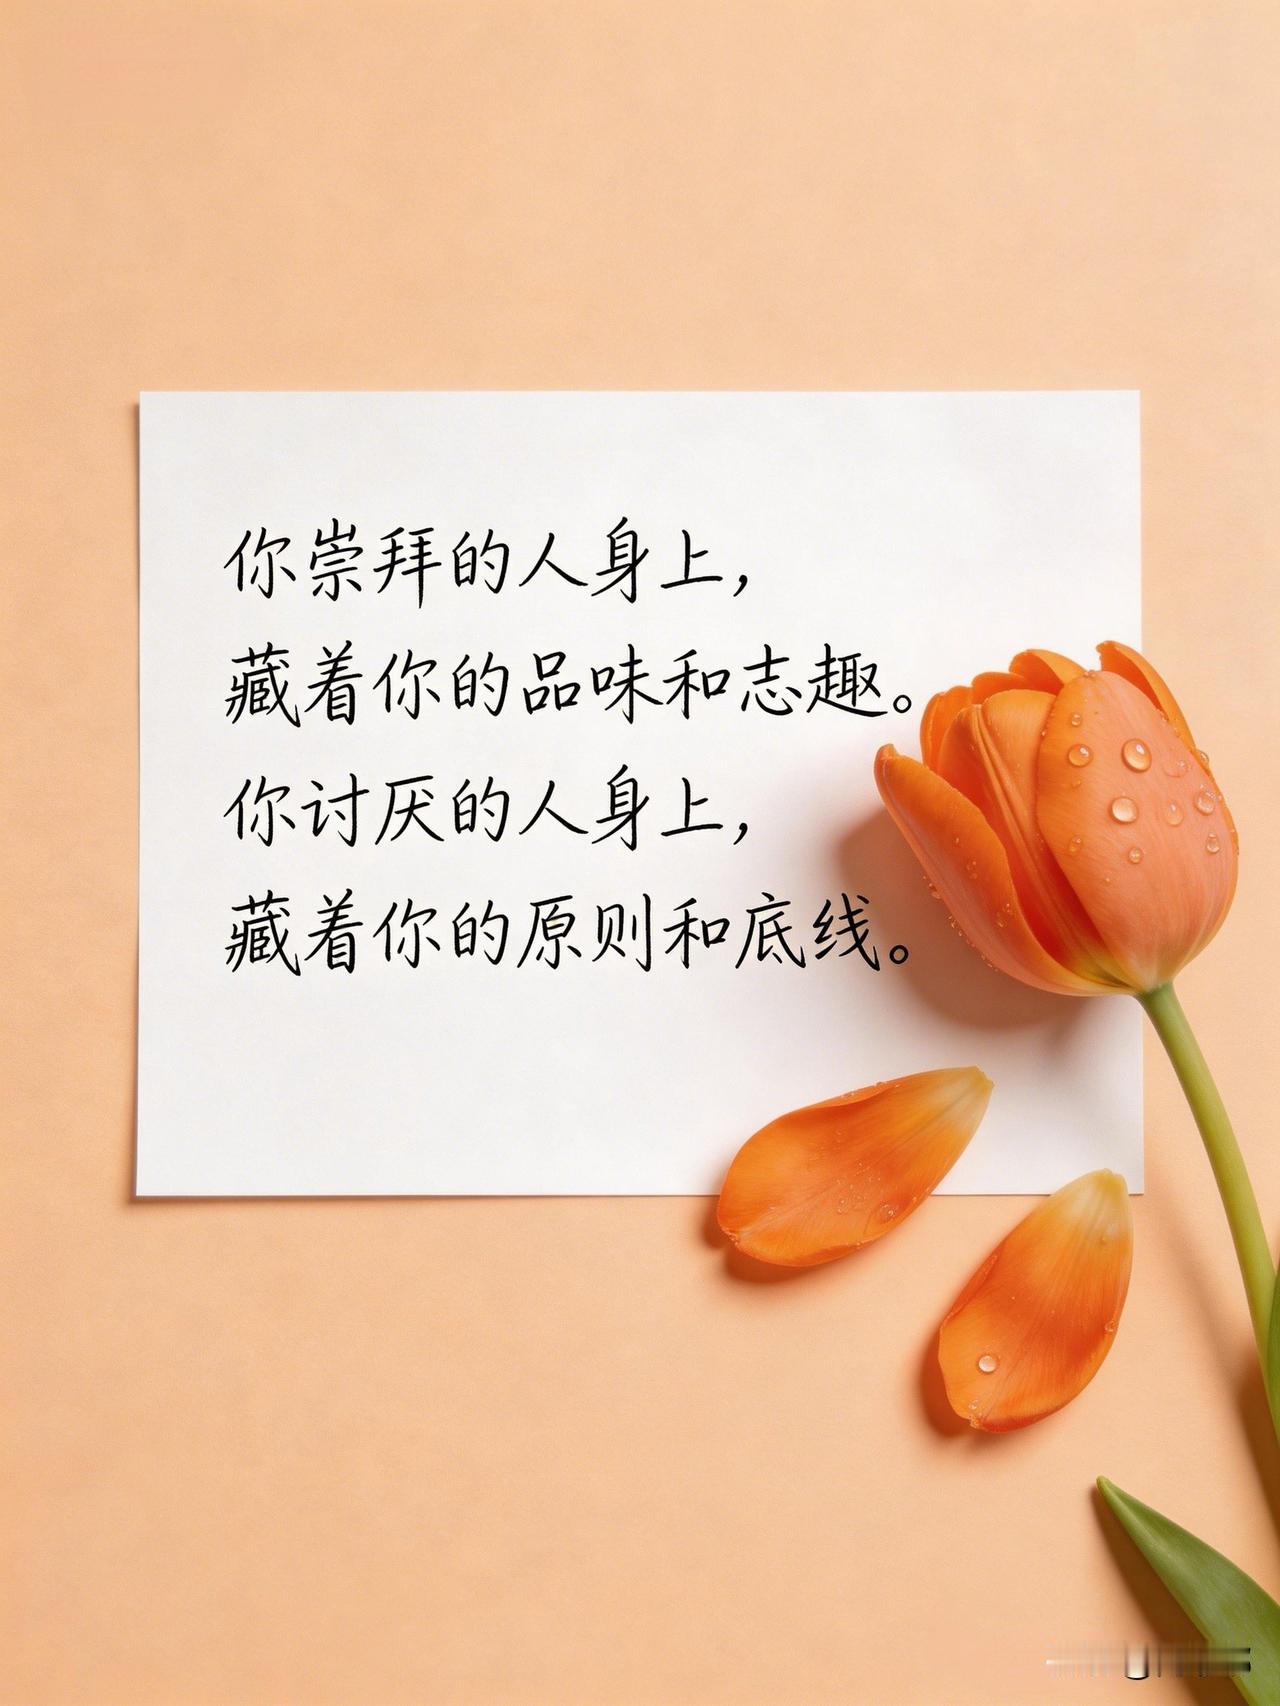 你崇拜的人身上，
藏着你的品味和志趣。
你讨厌的人身上，
藏着你的原则和底线。